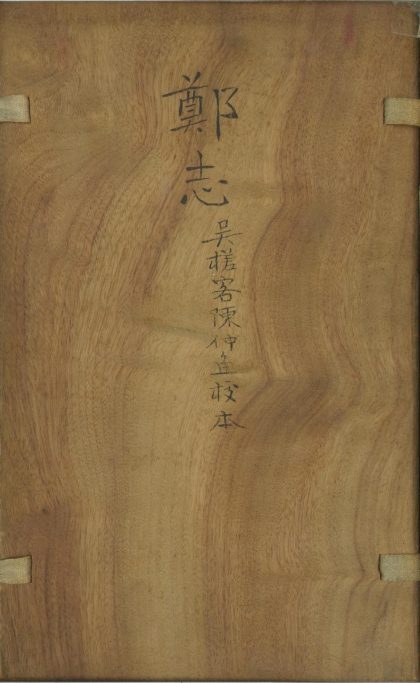 鄭志
吳槎客陳仲魚校本